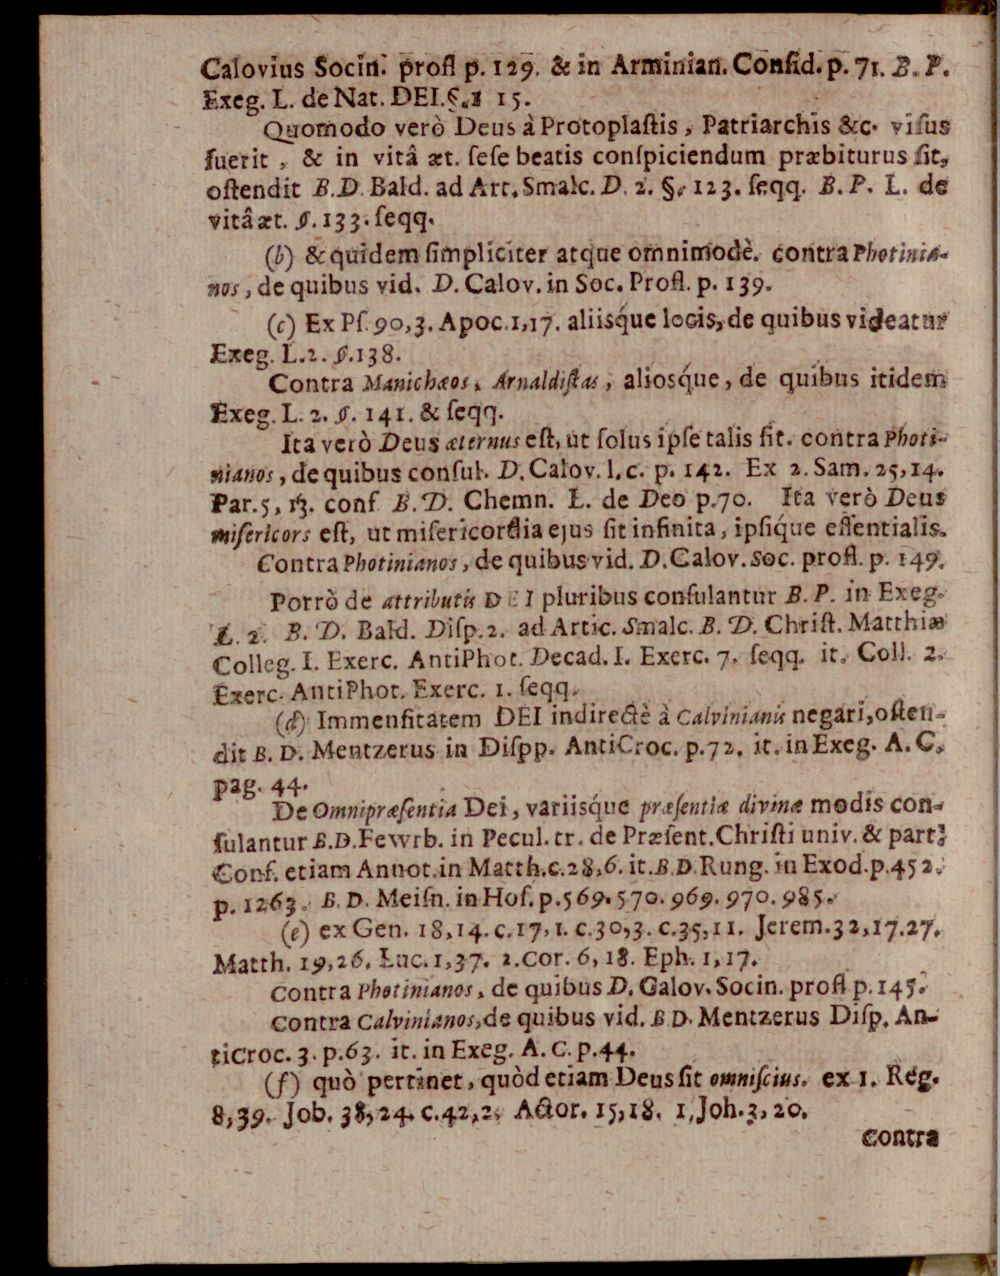 Calovius Socin. profl p. 129. & in Arminian. Consid. p. 71. B. P.
Exeg. L. de Nat. DEI. §. 1 15.
Quomodo verò Deus à Protoplastis, Patriarchis &c. visus
fuerit, & in vitâ æt. sese beatis conspiciendum præbiturus sit,
ostendit B.D. Bald. ad Art. Smalc. D. 2. §. 123. seqq. B. P. L. de
vitâ æt. §. 133. seqq.
(b) & quidem simpliciter atque omnimodè. contra Photinia-
nos, de quibus vid. D. Calov. in Soc. Profl. p. 139.
(c) Ex Ps. 90,3. Apoc. 1,17. aliisq́ue locis, de quibus videatur
Exeg. L. 2. §. 138.
Contra Manichæos, Arnaldistas, aliosq́ue, de quibus itidem
Exeg. L. 2. §. 141. & seqq.
Ita verò Deus æternus est, ut solus ipse talis sit. contra Photi-
nianos, de quibus consul. D. Calov. l. c. p. 142. Ex 2. Sam. 25,14.
Par. 5, 13. conf B. D. Chemn. L. de Deo p. 70. Ita verò Deus
misericors est, ut misericordia ejus sit infinita, ipsiq́ue essentialis.
Contra Photinianos, de quibus vid. D. Calov. Soc. profl. p. 149.
Porrò de attributis DEI pluribus consulantur B. P. in Exeg.
L. 2. B. D. Bald. Disp. 2. ad Artic. Smalc. B. D. Christ. Matthiæ
Colleg. I. Exerc. AntiPhot. Decad. I. Exerc. 7. seqq. it. Coll. 2.
Exerc. AntiPhot. Exerc. 1. seqq.
(d) Immensitatem DEI indirectè à Calvinianis negari, osten-
dit B. D. Mentzerus in Dispp. AntiCroc. p. 72. it. in Exeg. A. C.
pag. 44.
De Omnipræsentia Dei, variisq́ue præsentiæ divinæ modis con-
sulantur B.D. Fewrb. in Pecul. tr. de Præsent. Christi univ. & part.
Conf. etiam Annot. in Matth. c. 28,6. it. B.D. Rung. in Exod. p. 452.
p. 1263. B. D. Meisn. in Hos. p. 569. 570. 969. 970. 985.
(e) ex Gen. 18,14. c. 17,1. c. 30,3. c. 35,11. Jerem. 32,17.27.
Matth. 19,26. Luc. 1,37. 2. Cor. 6, 18. Eph. 1, 17.
Contra Photinianos, de quibus D. Calov. Socin. profl p. 145.
Contra Calvinianos, de quibus vid. B D. Mentzerus Disp. An-
tiCroc. 3. p. 63. it. in Exeg. A. C. p. 44.
(f) quò pertinet, quòd etiam Deus sit omniscius. ex 1. Reg.
8,39. Job. 38,24. c. 42,2. Actor. 15,18. 1, Joh. 3, 20.
Contra